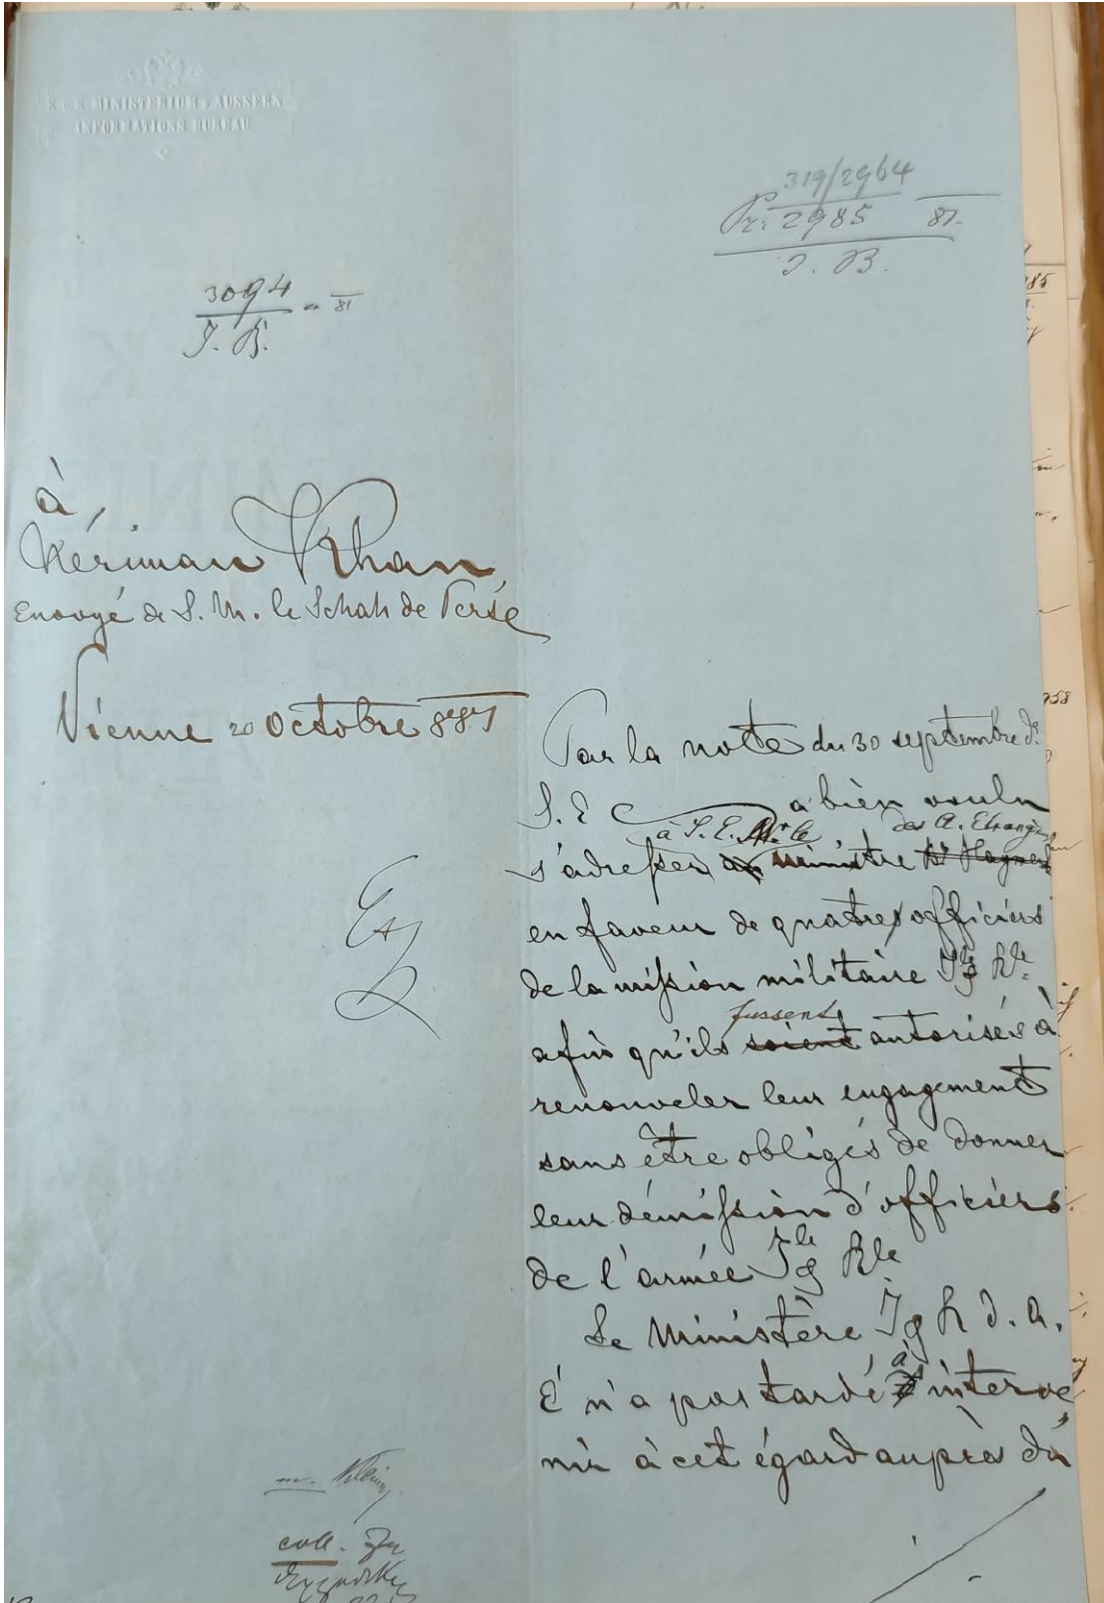 K. u. K. MINISTERIUM D. AUSSERN
INFORMATIONS BUREAU
319/2964
Pr. 2985 81.
J. B.
3094 - 81
J. B.
à
Nériman Khan
Envoyé de S. M. le Schah de Perse
Vienne 20 Octobre 881
Par la note du 30 septembre dr
S. E a bien voulu
à S. E. Mr. le des A. Etrangères
s'adresser au ministre de Haymerle
en faveur de quatre officiers
de la mission militaire I & Rle
fussent
afin qu'ils soient autorisés à
renouveler leur engagement
sans être obligés de donner
leur démission d'officiers
de l'armée Ile & Rle
Le Ministère I & R d. A.
E n'a pas tardé à interve
nir à cet égard auprès du
m. Klein
coll.